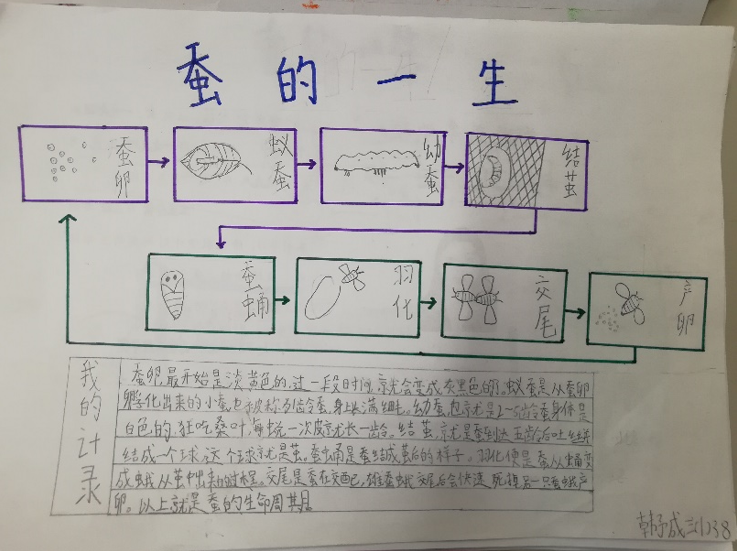 蚕的一生
蚕卵
蚁蚕
幼蚕
结茧
蚕蛹
羽化
交尾
产卵
我的记录
蚕卵最开始是淡黄色的,过一段时间就会变成灰黑色的。蚁蚕是从蚕卵
孵化出来的小蚕,也被称为一龄蚕,身上长满细毛。幼蚕也就是2-5龄蚕身体是
白色的,狂吃桑叶,每蜕一次皮就长一龄。结茧,就是蚕到达五龄后吐丝
结成一个球,这个球就是茧。蚕蛹是蚕结成茧后的样子。羽化便是蚕从蛹变
成蛾从茧中出来的过程。交尾是蚕在交配,雄蚕蛾交尾后会快速死掉
卵。以上就是蚕的生命周期。
韩